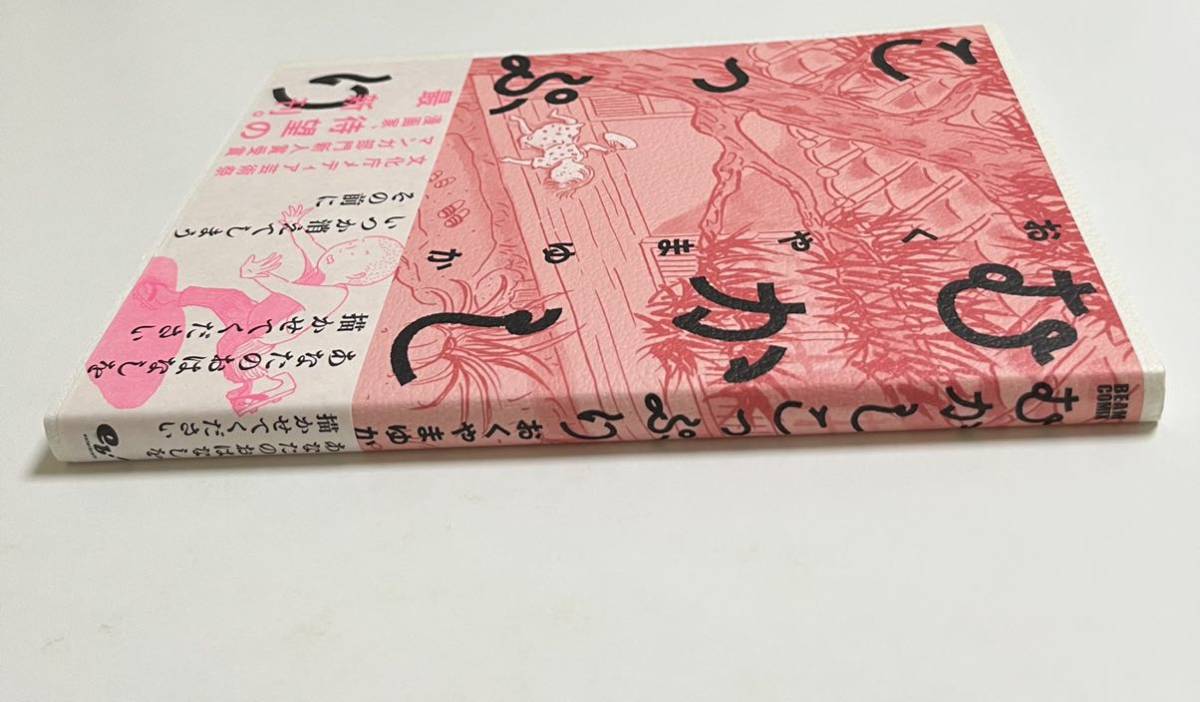 むかし
こっぷり
おくやまゆか
あなたのおはなしを
描かせてください
いつか消えてしまう
その前に
文化庁メディア芸術祭
マンガ部門新人賞受賞
漫画家、待望の
最新刊。
BEAM
COMI
むかしこっぷり
おくやまゆか
あなたのおはなしを
描かせてください